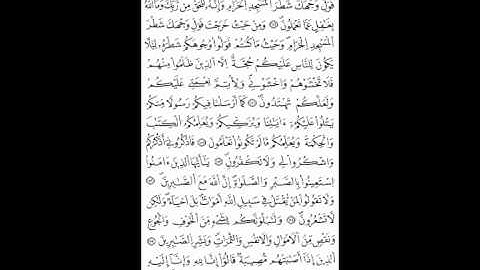 فَوَلِّ وَجْهَكَ شَطْرَ الْمَسْجِدِ الْحَرَامِ وَإِنَّهُ لَلْحَقُّ مِن رَّبِّكَ وَمَا اللَّهُ
بِغَٰفِلٍ عَمَّا تَعْمَلُونَ وَمِنْ حَيْثُ خَرَجْتَ فَوَلِّ وَجْهَكَ شَطْرَ
الْمَسْجِدِ الْحَرَامِ وَحَيْثُ مَا كُنتُمْ فَوَلُّوا وُجُوهَكُمْ شَطْرَهُ لِئَلَّا
يَكُونَ لِلنَّاسِ عَلَيْكُمْ حُجَّةٌ إِلَّا الَّذِينَ ظَلَمُوا مِنْهُمْ
فَلَا تَخْشَوْهُمْ وَاخْشَوْنِي وَلِأُتِمَّ نِعْمَتِي عَلَيْكُمْ
وَلَعَلَّكُمْ تَهْتَدُونَ كَمَا أَرْسَلْنَا فِيكُمْ رَسُولًا مِنكُمْ
يَتْلُوا عَلَيْكُمْ ءَايَٰتِنَا وَيُزَكِّيكُمْ وَيُعَلِّمُكُمُ الْكِتَٰبَ
وَالْحِكْمَةَ وَيُعَلِّمُكُم مَّا لَمْ تَكُونُوا تَعْلَمُونَ فَاذْكُرُونِي أَذْكُرْكُمْ
وَاشْكُرُوا لِي وَلَا تَكْفُرُونِ يَٰأَيُّهَا الَّذِينَ ءَامَنُوا
اسْتَعِينُوا بِالصَّبْرِ وَالصَّلَوٰةِ إِنَّ اللَّهَ مَعَ الصَّٰبِرِينَ
وَلَا تَقُولُوا لِمَن يُقْتَلُ فِي سَبِيلِ اللَّهِ أَمْوَٰتٌ بَلْ أَحْيَاءٌ وَلَٰكِن
لَّا تَشْعُرُونَ وَلَنَبْلُوَنَّكُم بِشَيْءٍ مِّنَ الْخَوْفِ وَالْجُوعِ
وَنَقْصٍ مِّنَ الْأَمْوَٰلِ وَالْأَنفُسِ وَالثَّمَرَٰتِ وَبَشِّرِ الصَّٰبِرِينَ
الَّذِينَ إِذَا أَصَٰبَتْهُم مُّصِيبَةٌ قَالُوا إِنَّا لِلَّهِ وَإِنَّا إِلَيْهِ